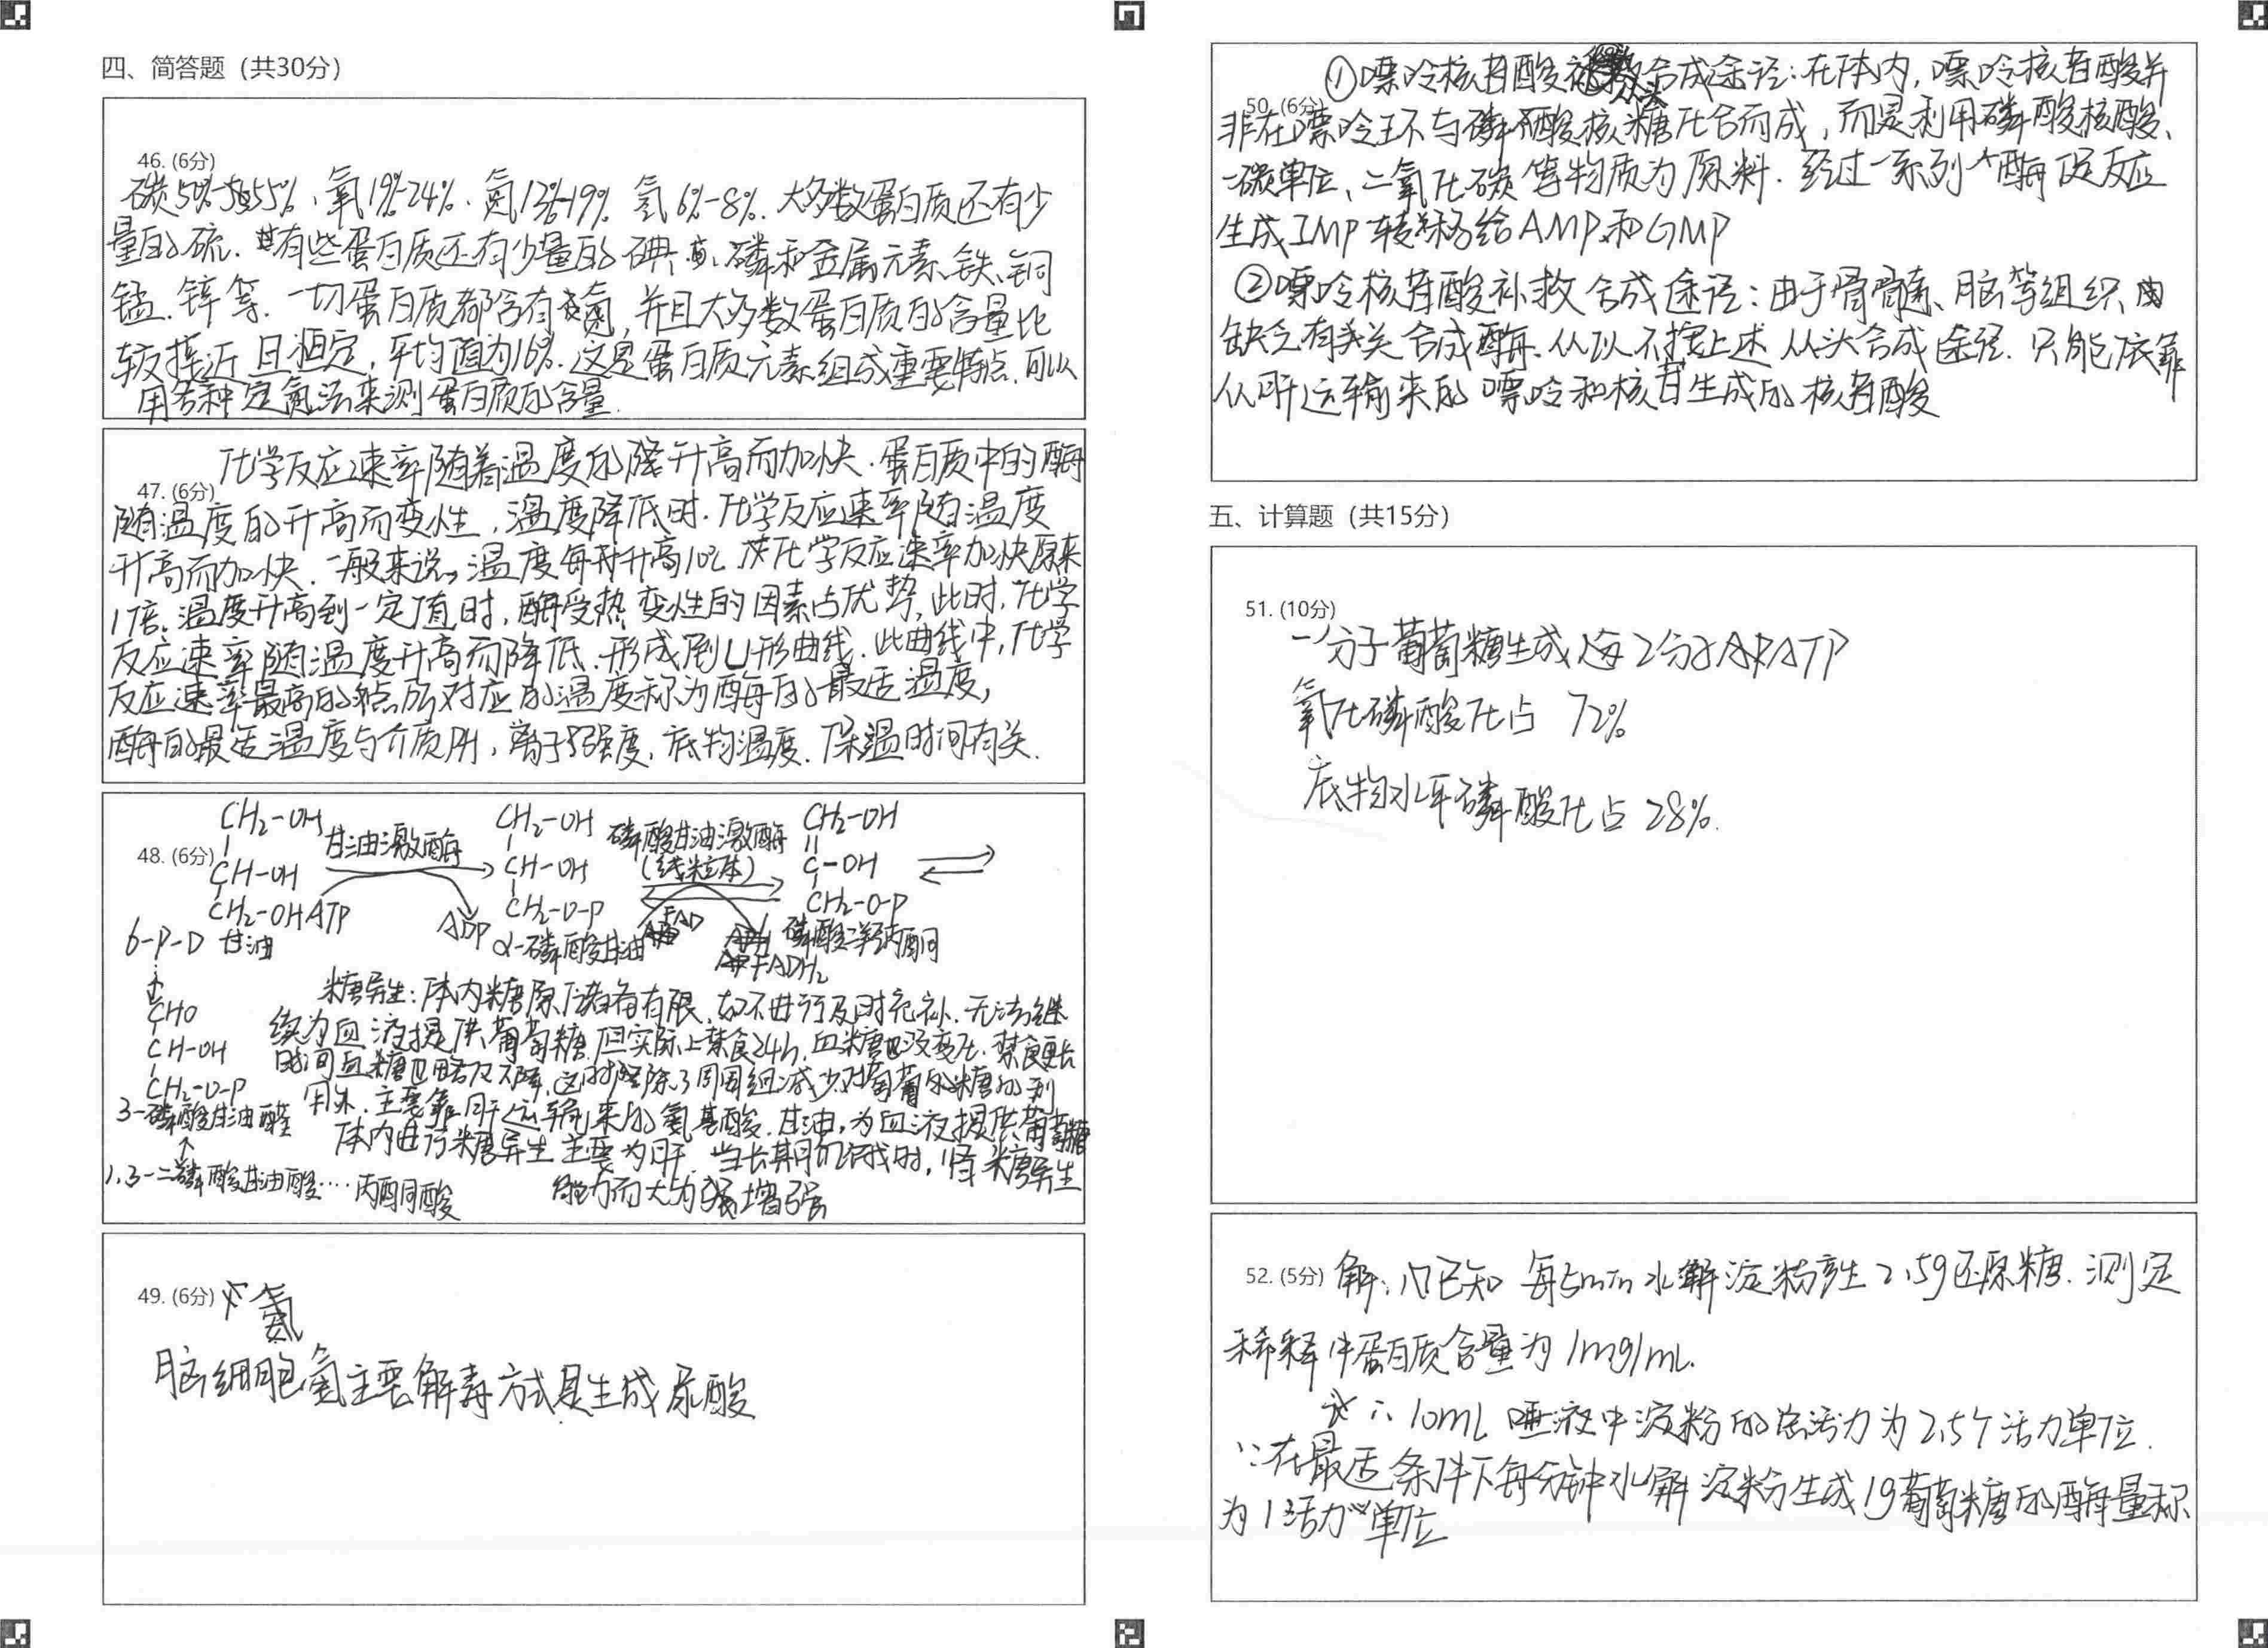 四、简答题（共30分）
46. (6分)
碳50%-55%、氧19%-24%、氮13%-19% 氢6%-8%. 大多数蛋白质还有少
量的硫. 有些蛋白质还有少量的碘、磷和金属元素、铁、铜
锰. 锌等. 一切蛋白质都含有氮, 并且大多数蛋白质的含量比
较接近且恒定, 平均值为16%. 这是蛋白质元素组成重要特点. 可以
用各种定氮法来测蛋白质的含量.
化学反应速率随着温度的升高而加快. 蛋白质中的酶
47. (6分)
随温度的升高而变性, 温度降低时. 化学反应速率随温度
升高而加快. 一般来说, 温度每升高10℃ 化学反应速率加快原来
1倍. 温度升高到一定值时, 酶受热变性的因素占优势, 此时, 化学
反应速率随温度升高而降低. 形成倒U形曲线. 此曲线中, 化学
反应速率最高的点所对应的温度称为酶的最适温度,
酶的最适温度与介质PH, 离子强度, 底物温度. 保温时间有关.
48. (6分)
CH2-OH 甘油激酶 CH2-OH 磷酸甘油激酶 CH2-OH
CH-OH CH-OH (线粒体) C-OH
CH2-OH ATP ADP CH2-O-P FAD CH2-O-P
6-P-D 甘油 α-磷酸甘油 FADH2 磷酸二羟丙酮
CHO
CH-OH
CH2-O-P
3-磷酸甘油醛
1,3-二磷酸甘油酸…. 丙酮酸
糖异生: 体内糖原储备有限, 如不进行及时充补. 无法继
续为血液提供葡萄糖. 但实际上禁食24h, 血糖也没变化. 禁食更长
时间血糖也略及下降, 这时除了周围组减少对葡萄糖的利
用外. 主要靠肝运输来的氨基酸. 甘油, 为血液提供葡萄糖
体内进行糖异生主要为肝. 当长期饥饿时, 肾糖异生
能力而大为增强
49. (6分)
氨
脑细胞氨主要解毒方式是生成尿酸
①嘌呤核苷酸从头合成途径: 在体内, 嘌呤核苷酸并
50. (6分)
非在嘌呤环与磷酸核糖化合而成, 而是利用磷酸核酸、
一碳单位、二氧化碳等物质为原料. 经过一系列酶促反应
生成IMP转移给AMP和GMP
②嘌呤核苷酸补救合成途径: 由于骨髓、脑等组织
缺乏有关合成酶. 从以不按上述从头合成途径. 只能依靠
从肝运输来的嘌呤和核苷生成的核苷酸
五、计算题（共15分）
51. (10分)
一分子葡萄糖生成 2分子ATP
氧化磷酸化占 72%
底物水平磷酸化占28%.
52. (5分) 解: 已知 每5min水解淀粉产生2.5g还原糖. 测定
稀释中蛋白质含量为1mg/mL.
∴ 10mL 唾液中淀粉的总活力为2.5个活力单位.
∵在最适条件下每分钟水解淀粉生成1g葡萄糖的酶量称
为1活力单位